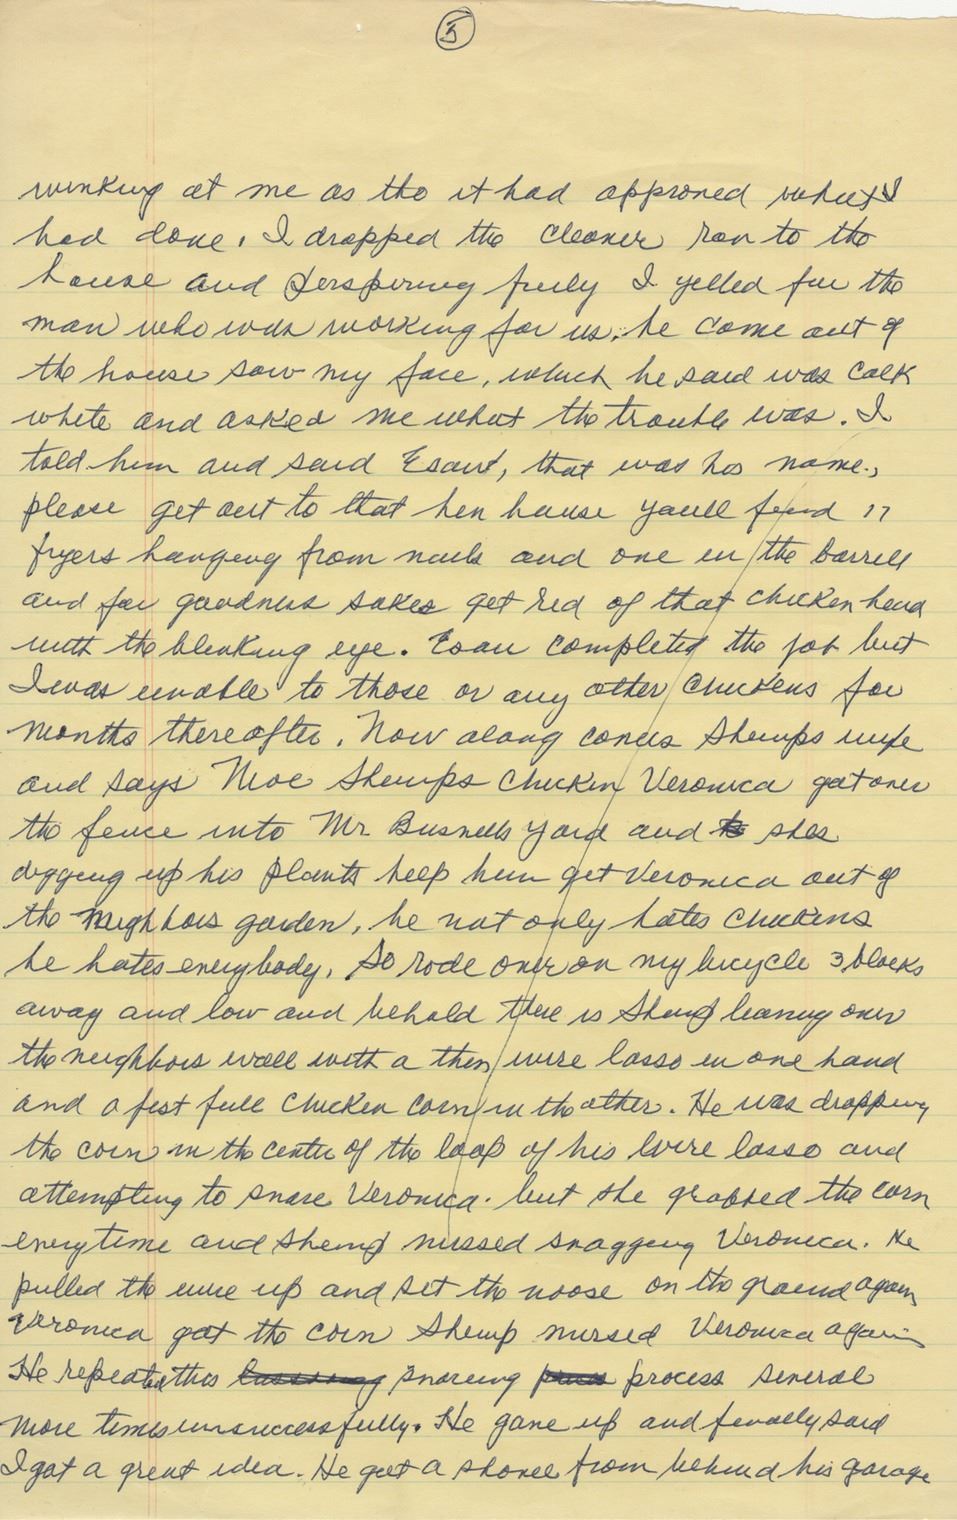 5
winking at me as tho it had approned what I
had done. I dropped the cleaner ran to the
house and perspiring freely I yelled for the
man who was working for us. he come out of
the house saw my face, which he said was calk
white and asked me what the trouble was. I
told him and said Esau, that was his name,
please get out to that hen house youll find 17
fryers hanging from nails and one in the barrell
and for goodness sakes get rid of that chicken head
with the blinking eye. Esau completed the job but
I was unable to those or any other chickens for
months thereafter. Now along comes Shemps wife
and says Moe Shemps chicken Veronica got over
the fence into Mr Busnells yard and shes
digging up his plants help him get Veronica out of
the neighbors garden, he not only hates chickens
he hates everybody. So rode over on my bicycle 3 blocks
away and low and behold there is Shemp leaning over
the neighbors wall with a thin wire lasso in one hand
and a fist full chicken corn in the other. He was dropping
the corn in the center of the loop of his wire lasso and
attempting to snare Veronica. but she grabbed the corn
everytime and Shemp missed snagging Veronica. He
pulled the wire up and set the noose on the ground again
Veronica got the corn Shemp missed Veronica again
He repeated this snareing process several
more times unsuccessfully. He gave up and finally said
I got a great idea. He got a shovel from behind his garage